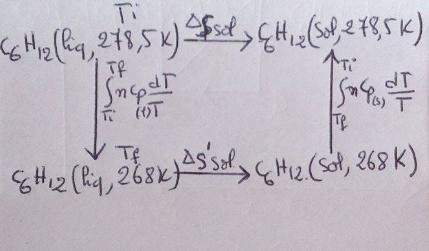 Ti
C₆H₁₂(liq, 278,5K) ΔSsol C₆H₁₂(sol, 278,5K)
∫Ti^Tf nCp(l) dT/T ∫Tf^Ti nCp(s) dT/T
Tf
C₆H₁₂(liq, 268K) ΔS'sol C₆H₁₂.(sol, 268K)